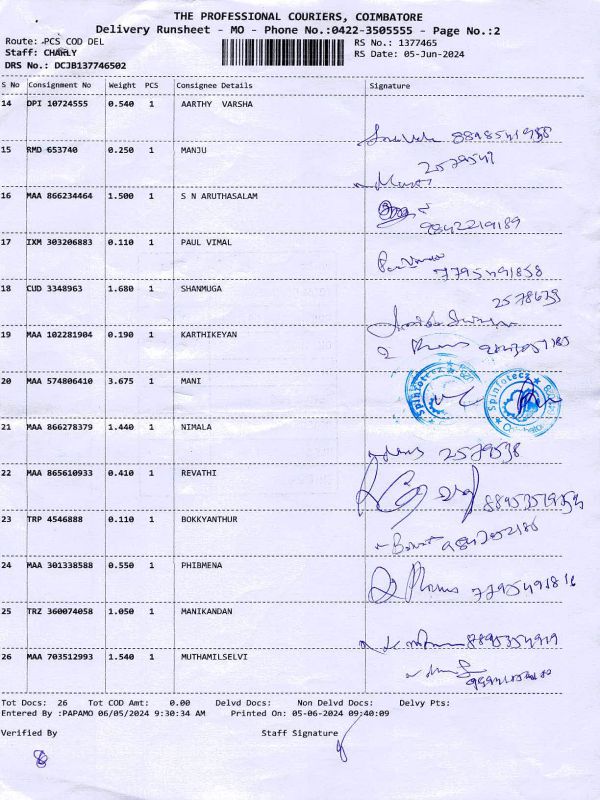 THE PROFESSIONAL COURIERS, COIMBATORE
Delivery Runsheet - MO - Phone No.:0422-3505555 - Page No.:2
Route: PCS COD DEL
RS No.: 1377465
Staff: CHARLY
RS Date: 05-Jun-2024
DRS No.: DCJB137746502
S No Consignment No Weight PCS Consignee Details Signature
14 DPI 10724555 0.540 1 AARTHY VARSHA
15 RMD 653740 0.250 1 MANJU
2579549
16 MAA 866234464 1.500 1 S N ARUTHASALAM
9842219189
17 IXM 303206883 0.110 1 PAUL VIMAL
7795491858
18 CUD 3348963 1.680 1 SHANMUGA
2578639
19 MAA 102281904 0.190 1 KARTHIKEYAN
20 MAA 574806410 3.675 1 MANI
Spinfotecz
Spinfotecz
21 MAA 866278379 1.440 1 NIMALA
2579538
22 MAA 865610933 0.410 1 REVATHI
23 TRP 4546888 0.110 1 BOKKYANTHUR
24 MAA 301338588 0.550 1 PHIBMENA
25 TRZ 360074058 1.050 1 MANIKANDAN
8895354919
26 MAA 703512993 1.540 1 MUTHAMILSELVI
Tot Docs: 26 Tot COD Amt: 0.00 Delvd Docs: Non Delvd Docs: Delvy Pts:
Entered By :PAPAMO 06/05/2024 9:30:34 AM Printed On: 05-06-2024 09:40:09
Verified By Staff Signature